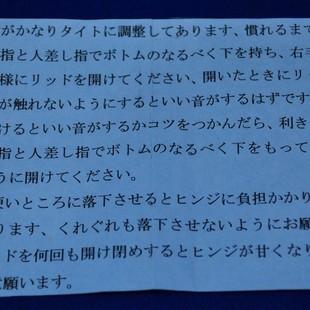 がかなりタイトに調整してあります、慣れるまで
指と人差し指でボトムのなるべく下を持ち、右手
様にリッドを開けてください、開いたときにリッ
が触れないようにするといい音がするはずです
けるといい音がするかコツをつかんだら、利き
指と人差し指でボトムのなるべく下をもって
うに開けてください。
硬いところに落下させるとヒンジに負担かかり
ります、くれぐれも落下させないようにお願
ドを何回も開け閉めするとヒンジが甘くなり
願います。